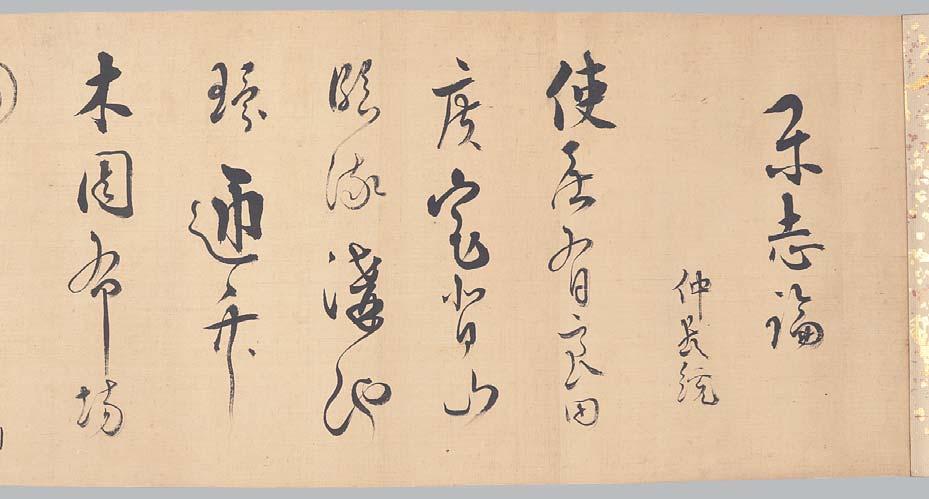 樂志論
仲長統
使居有良田
廣宅背山
臨流溝池
環迊竹
木周布場